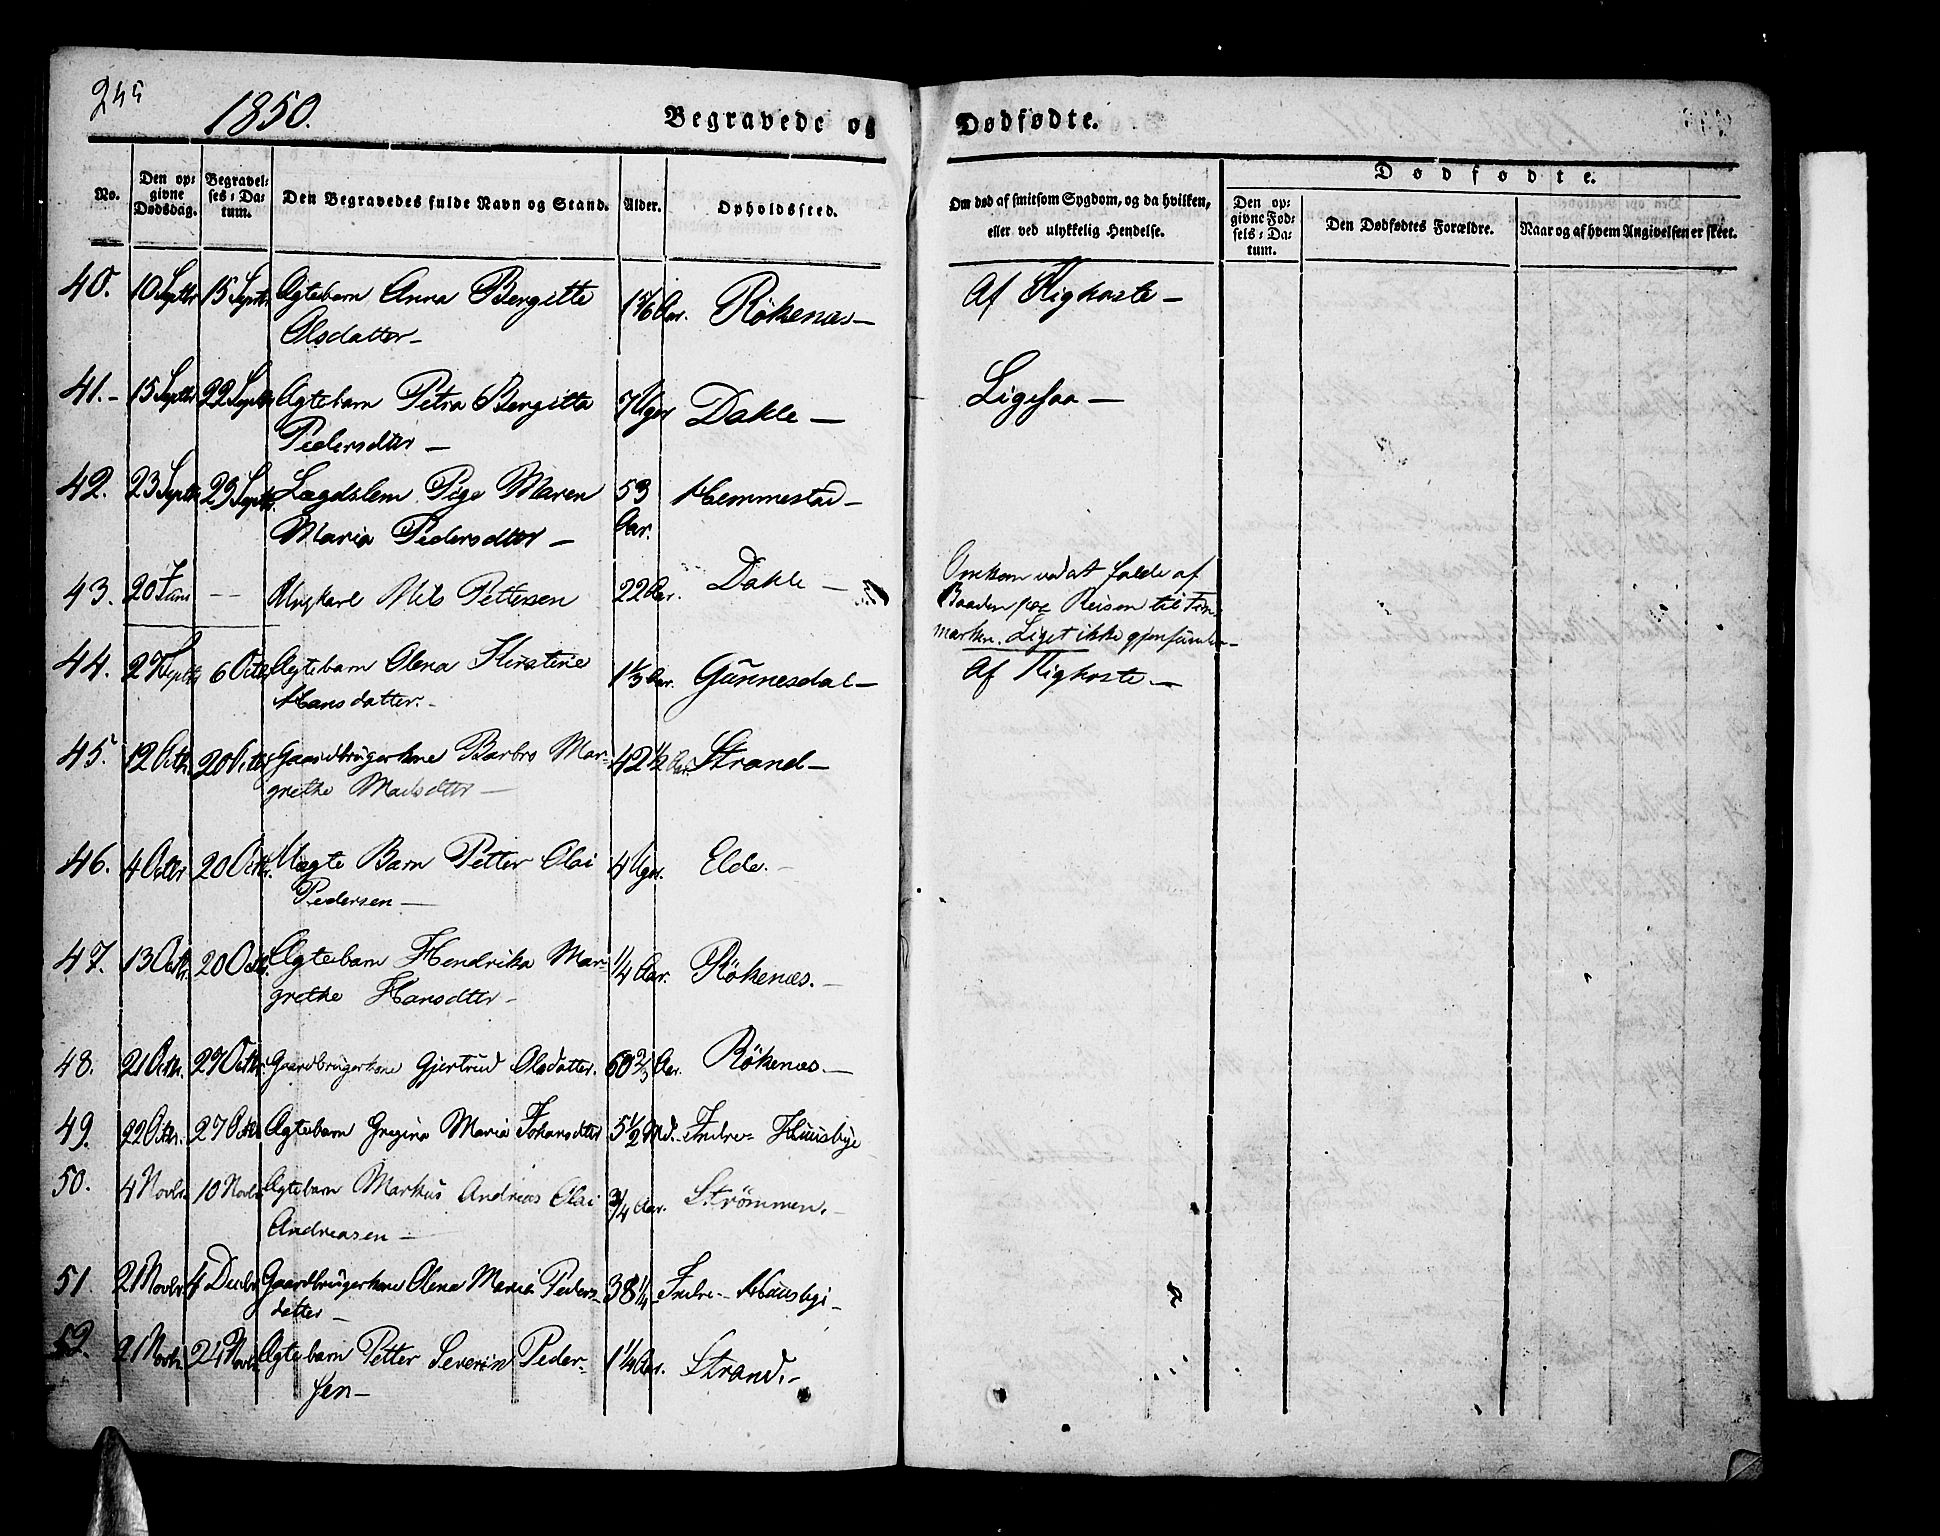 1850.
Begravede og
Dødfødte.
No.
Den op-
givne
Dødsdag.
Begravel-
ses-Da-
tum.
Den Begravedes fulde Navn og Stand.
Alder.
Opholdssted.
Om død af smitsom Sygdom, og da hvilken,
eller ved ulykkelig Hendelse.
Dødfødte.
Den op-
givne Fød-
sels-Da-
tum.
Den Dødfødtes Forældre.
Naar og af hvem Angivelsen er skeet.
40. 10 Septbr 15 Septbr Ægtebarn Anna Bergitte
Olsdatter – 1 5/6 Aar. Rökenæs – Af Kighoste –
41. – 15 Septbr 22 Septbr Ægtebarn Petra Bergitta
Pedersdtter – 7 Uger Dakle – Ligesaa –
42. 23 Septbr 29 Septbr. Lægdslem Pige Maren
Maria Pedersdtter – 53 Aar. Hemmestad –
43. 20 Juni – – Ungkarl Nils Pettersen 22 Aar. Dakle – Omkom ved at falde af
Baaden paa Reisen til Fin-
marken. Liget ikke gjenfunden –
44. 27 Septbr 6 Octbr Ægtebarn Olena Kirstine
Hansdatter. – 1 1/3 Aar. Gunnesdal – Af Kighoste. –
45. 12 Octbr. 20 Octbr Gaardbrugerkone Barbro Mar-
grethe Madsdtter – 42 1/2 Aar. Strand –
46. 4 Octbr 20 Octbr. Uægte Barn Petter Olai
Pedersen – 4 Uger. Elde. –
47. 13 Octbr. 20 Octbr. Ægtebarn Hendrika Mar-
grethe Hansdtter – 1/4 Aar. Rökenæs. –
48. 21 Octbr. 27 Octbr. Gaardbrugerkone Gjertrud Olsdatter. 60 2/3 Aar. Rökenæs. –
49. 22 Octbr. 27 Octbr Ægtebarn Gregina Maria Johansdtter 5 1/2 Md. – Indre- Huusbye
50. 4 Novbr. 10 Novbr. Ægtebarn Markus Andreas Olai
Andreasen – 3/4 Aar. Strömmen. –
51 21 Novbr. 4 Decbr. Gaardbrugerkone Olena Maria Peders-
datter – 38 1/4 – Indre- Huusbyi –
52. 21 Novbr. 24 Novbr. Ægtebarn Petter Severin Peder-
sen – 1 1/4 Aar. Strand. –